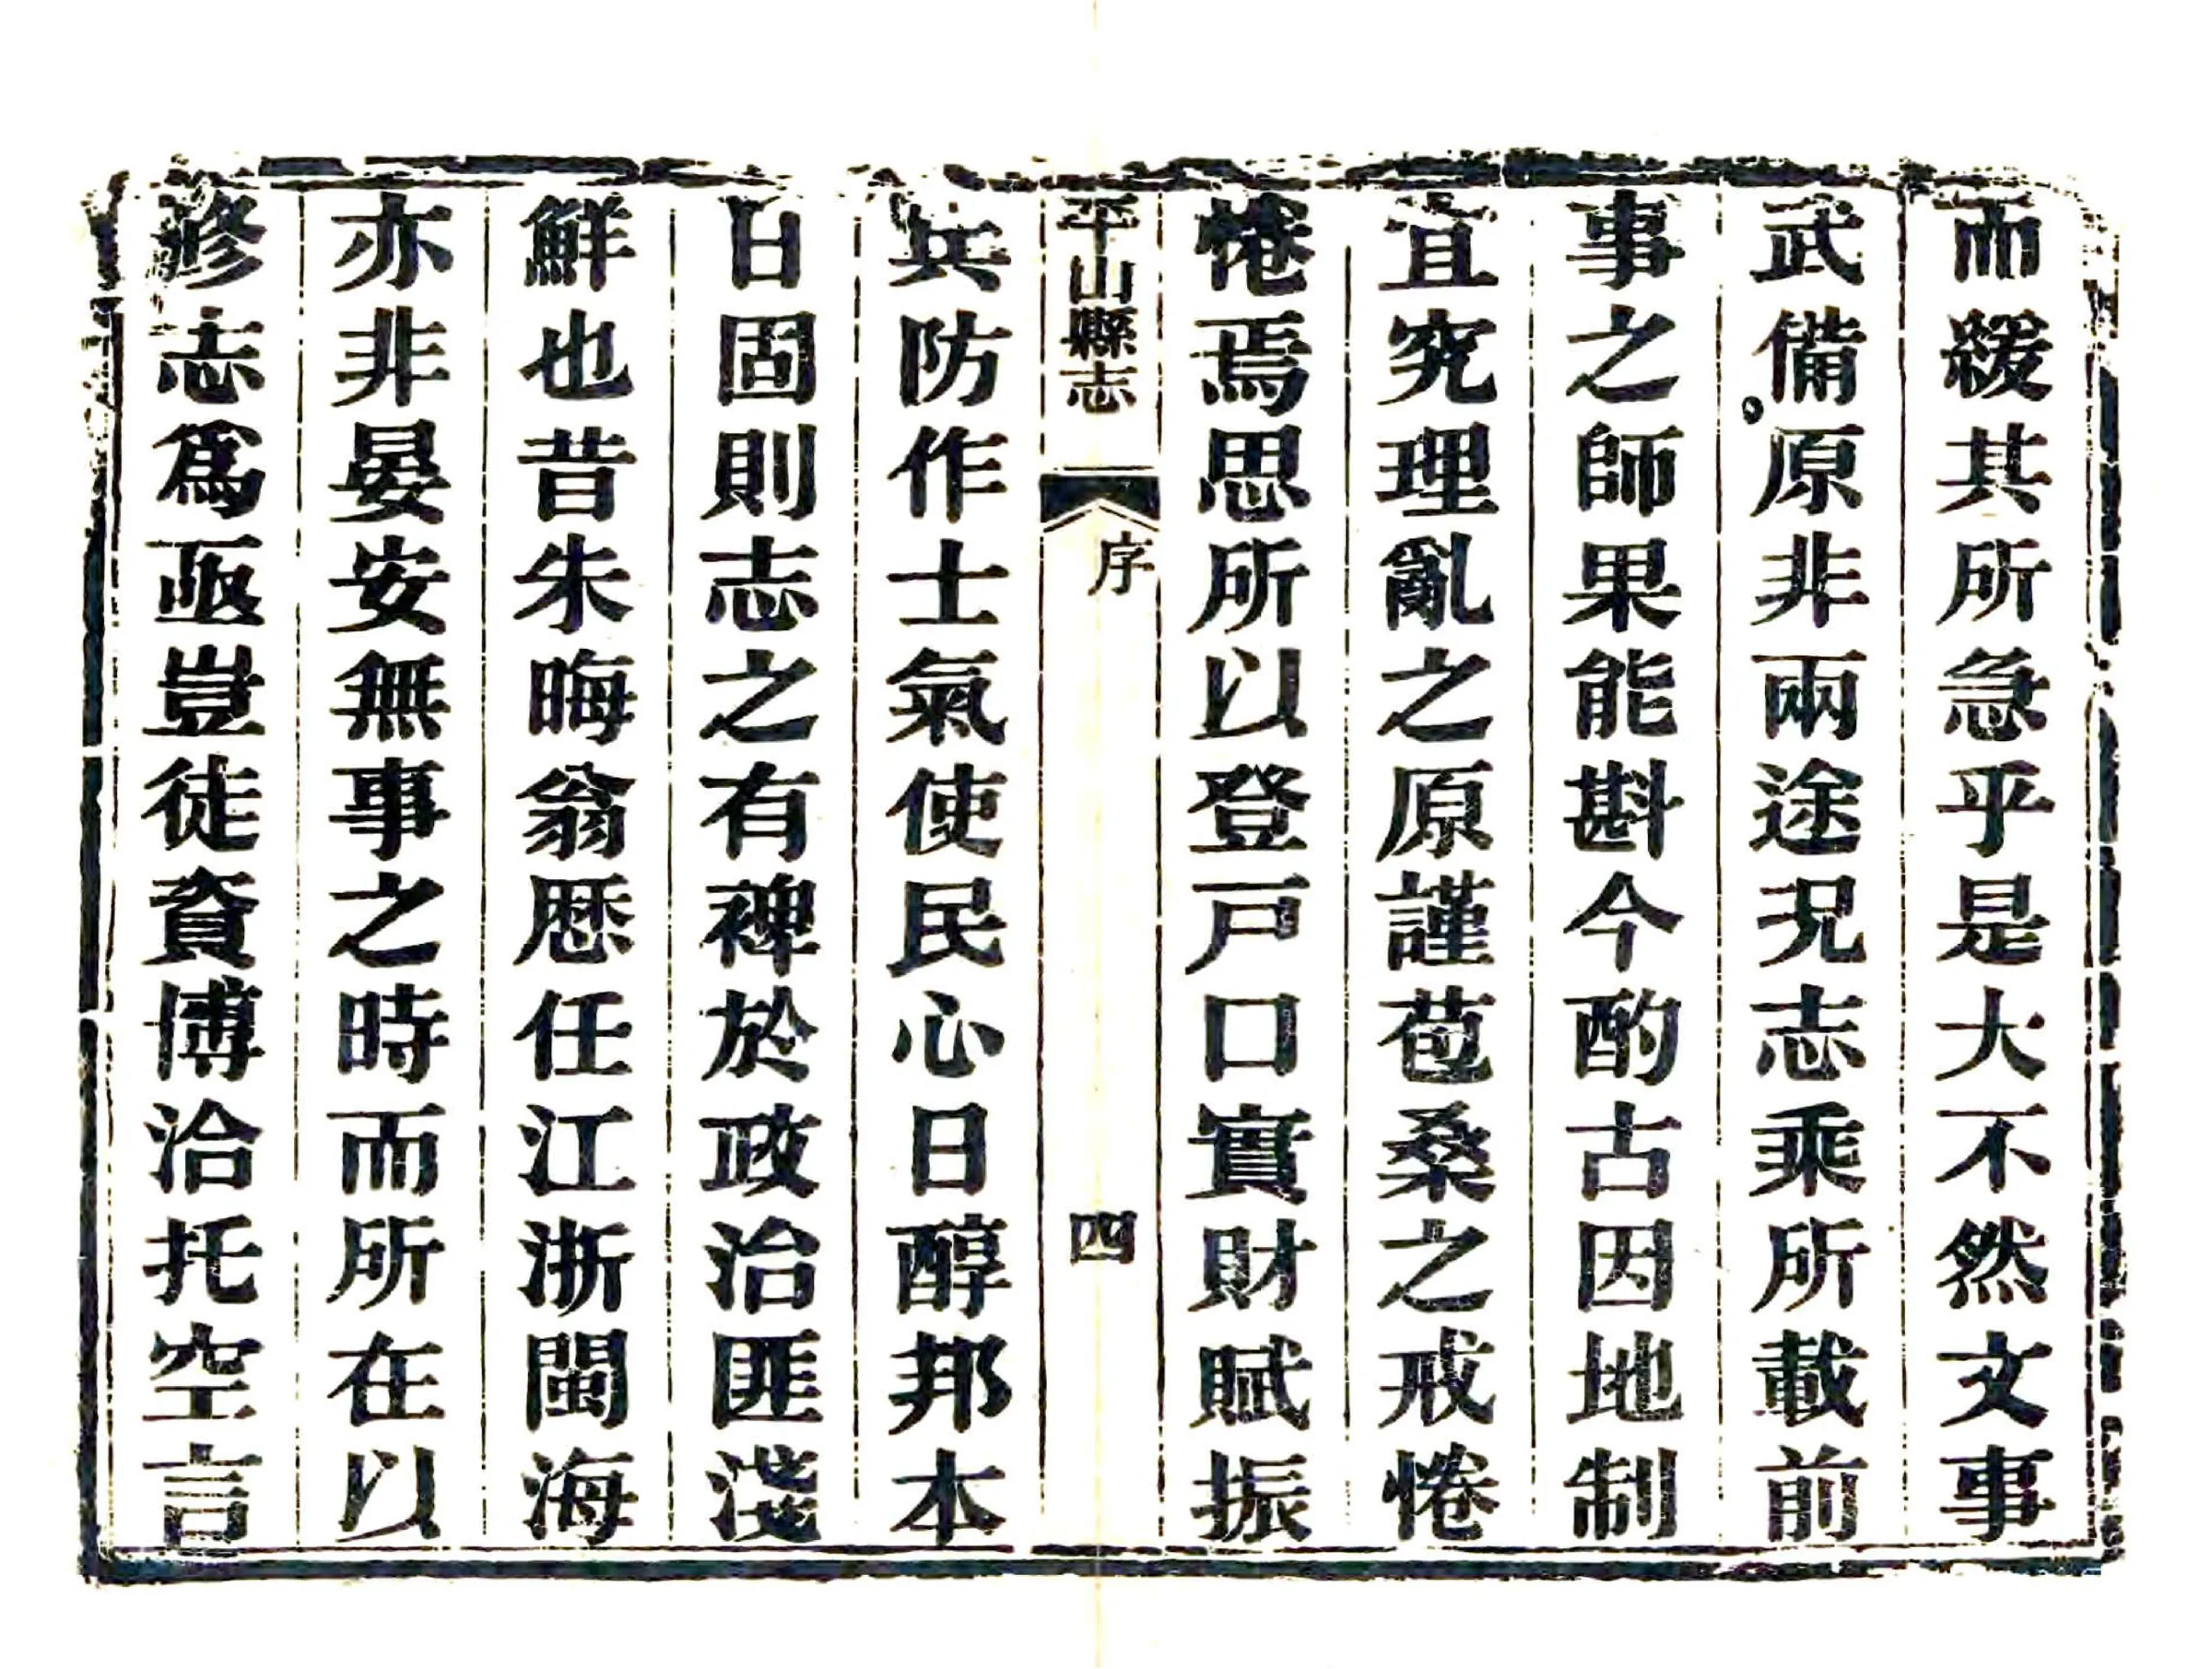 而緩其所急乎是大不然文事
武備原非兩途況志乘所載前
事之師果能斟今酌古因地制
宜究理亂之原謹苞桑之戒惓
惓焉思所以登戶口實財賦振
平山縣志
序
四
兵防作士氣使民心日醇邦本
日固則志之有裨於政治匪淺
鮮也昔朱晦翁歷任江浙閩海
亦非晏安無事之時而所在以
修志爲亟豈徒資博洽托空言